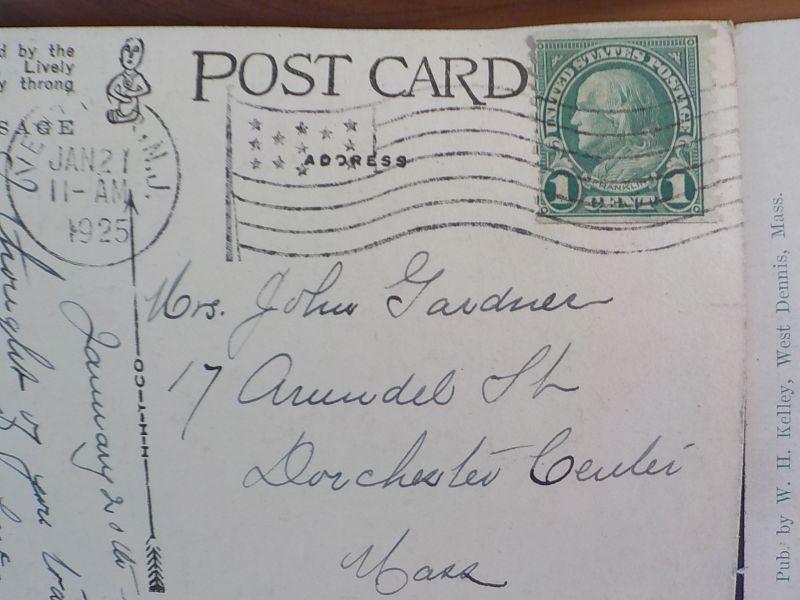 d by the
Lively
y throng
SAGE
POST CARD
ADDRESS
N.J.
JAN 21
11-AM
1925
UNITED STATES POSTAGE
FRANKLIN
1 CENT 1
Mrs. John Gardner
17 Arundel St
Dorchester Center
Mass
C-O-T-Y-H-H
January 20th
thought of you
Pub. by W. H. Kelley, West Dennis, Mass.